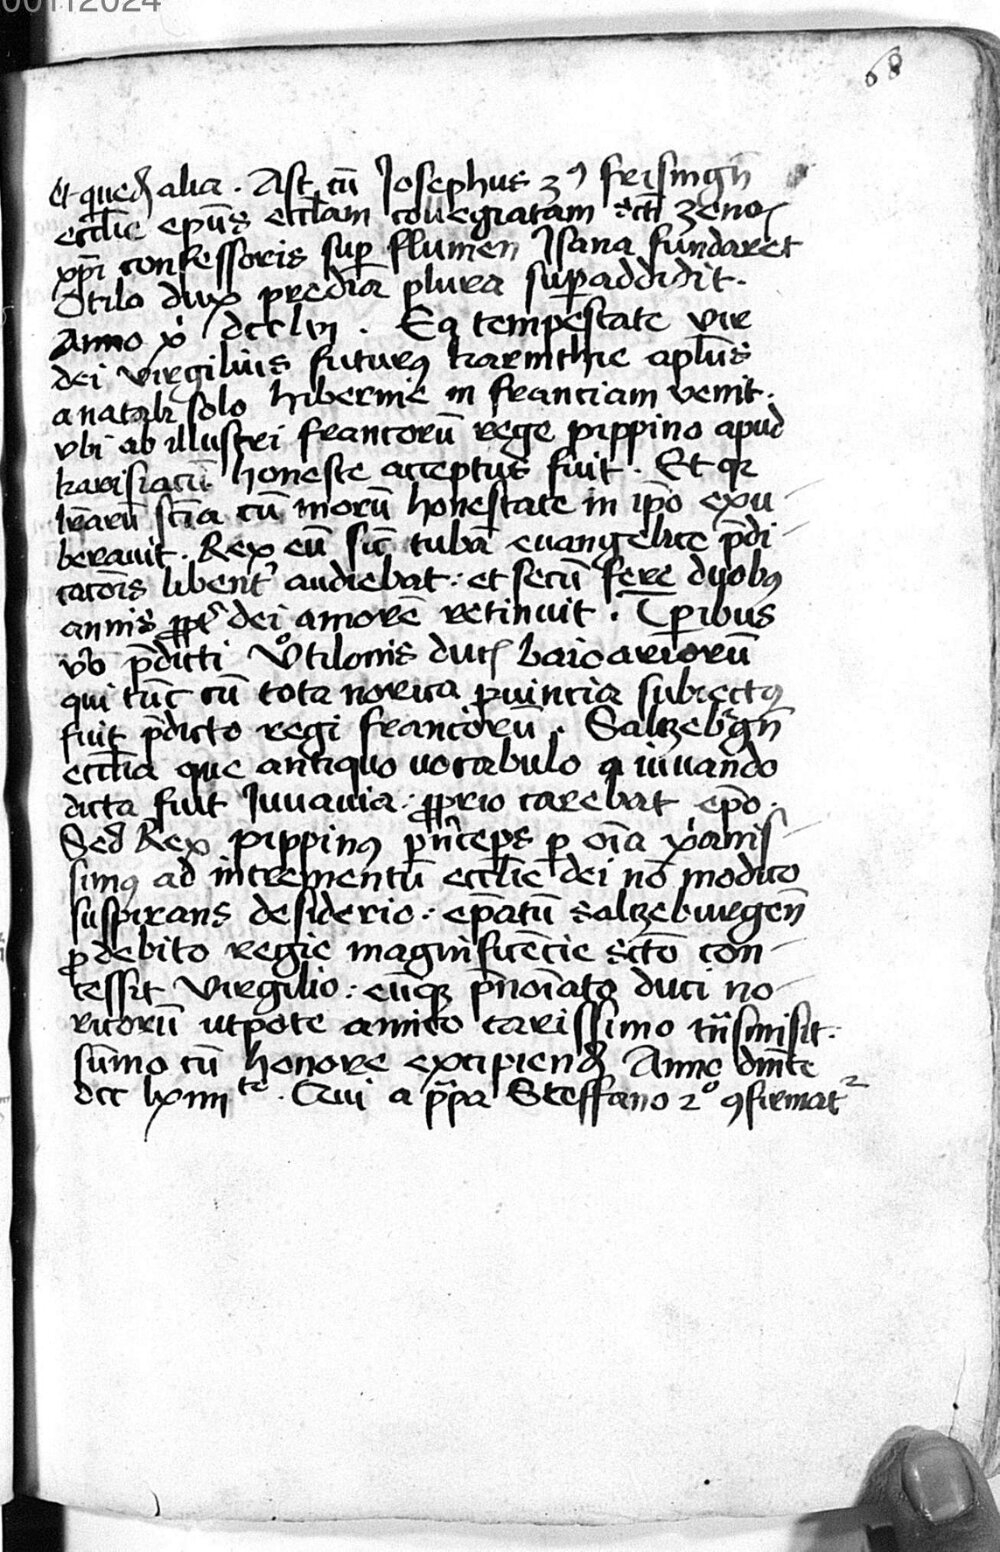 00112024
68
et qued̄ alia . Ast cū Josephus 3ꝰ frisingn̄
eccl̄ie ep̄us eccl̄am cōuegratam sc̄ti Zenoꝭ
xp̄i confessoris suꝑ flumen Isana fundaret
Otilo dux predia plura supaddidit .
Anno xͥ dcclvj . Ea tempestate vir
dei virgilius futurꝰ karinthie apl̄us
a natali solo hibernie in franciam venit .
vbi ab illustri francorū rege pippino apud
karisiacū honeste acceptus fuit . Et qꝛ
lr̄arū sc̄ia cū morū honestate in ip̄o exu
beravit . Rex eū sic̄ tuba euangelice p̄di
cacōis libent̾ audiebat : et secū fere duobꝰ
annis ꝓpt̾ dei amorē retinuit . Tꝑibus
v̊o p̄dicti Vͦtilonis ducꝭ baioariorū
qui tūc cū tota norica ꝓuincia subiectꝰ
fuit p̄dicto regi francorū . Saltzeb̾gn̄
eccl̄ia que antiquo vocabulo a iuuando
dicta fuit Juuauia : ꝓprio carebat ep̄o .
Sed Rex pippinꝰ p̄nceps ꝑ oīa xͥanis
simꝰ ad incrementū eccl̄ie dei nō modico
suspirans desiderio : ep̄atū saltzeburgen̄
ꝓ debito regie magnificēcie sc̄to con
cessit Virgilio : eūqꝫ p̄noīato duci no
ricorū utpote amico carissimo trn̄smisit .
sūmo cū honore excipiend̄ Anno dm̄ce
dcc lxiiii te . Qui a pāpa Steffano 2º ꝯfirmat̾